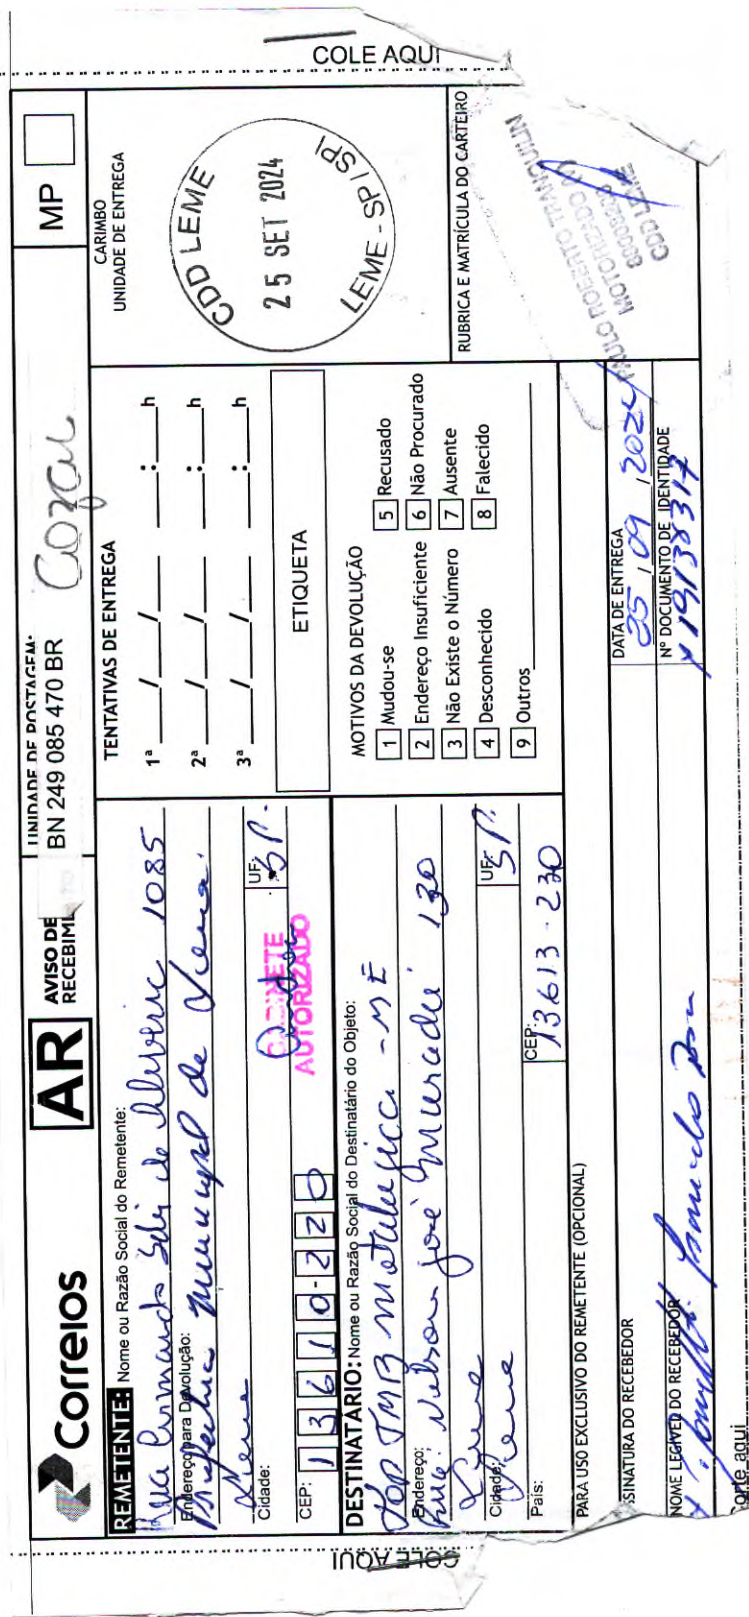 COLE AQUI
Correios
AR
AVISO DE
RECEBIM
UNIDADE DE POSTAGEM:
BN 249 085 470 BR
MP
REMETENTE: Nome ou Razão Social do Remetente:
Rua 1085
Endereço para Devolução:
Prefeitura Municipal de Leme
Leme
Cidade:
UF:
SP.
CEP: 13610-220
GABINETE
AUTORIZADO
DESTINATÁRIO: Nome ou Razão Social do Destinatário do Objeto:
TOP TMB Metalurgica - ME
Endereço:
Rua: Nelson José 130
Leme
Cidade:
Leme
UF:
SP.
País:
CEP:
13613-230
TENTATIVAS DE ENTREGA
1ª ____/____/____ ____:____h
2ª ____/____/____ ____:____h
3ª ____/____/____ ____:____h
ETIQUETA
MOTIVOS DA DEVOLUÇÃO
1 Mudou-se
2 Endereço Insuficiente
3 Não Existe o Número
4 Desconhecido
9 Outros
5 Recusado
6 Não Procurado
7 Ausente
8 Falecido
CARIMBO
UNIDADE DE ENTREGA
CDD LEME
25 SET 2024
LEME - SP / SPI
RUBRICA E MATRÍCULA DO CARTEIRO
PAULO ROBERTO TRANQUILIN
MOTORIZADO (M)
CDD LEME
PARA USO EXCLUSIVO DO REMETENTE (OPCIONAL)
SSINATURA DO RECEBEDOR
DATA DE ENTREGA
25/09/2024
NOME LEGÍVEL DO RECEBEDOR
Nº DOCUMENTO DE IDENTIDADE
x 19138317
COLE AQUI
orte aqui